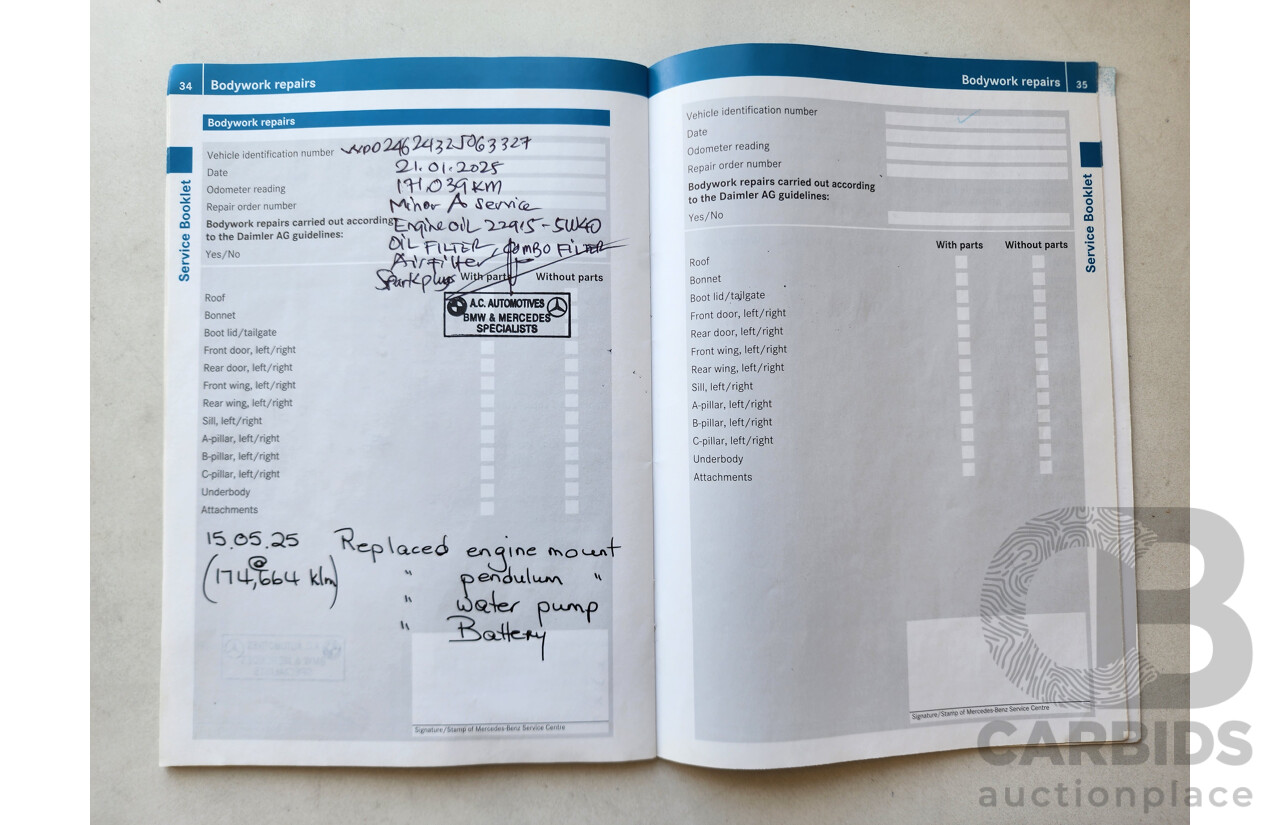 34 Bodywork repairs
Bodywork repairs
Vehicle identification number WDD2462432J063327
Date 21.01.2025
Odometer reading 171.039KM
Repair order number Minor A service
Bodywork repairs carried out according Engine OIL 22915-5W40
to the Daimler AG guidelines: OIL FILTER, COMBO FILTER
Yes/No Air filter
Spark plugs With parts Without parts
A.C. AUTOMOTIVES
BMW & MERCEDES
SPECIALISTS
Roof
Bonnet
Boot lid/tailgate
Front door, left/right
Rear door, left/right
Front wing, left/right
Rear wing, left/right
Sill, left/right
A-pillar, left/right
B-pillar, left/right
C-pillar, left/right
Underbody
Attachments
15.05.25 Replaced engine mount
@
(174,664 klm) " pendulum "
" water pump
" Battery
Signature/Stamp of Mercedes-Benz Service Centre
Service Booklet
Bodywork repairs 35
Vehicle identification number
Date
Odometer reading
Repair order number
Bodywork repairs carried out according
to the Daimler AG guidelines:
Yes/No
With parts Without parts
Roof
Bonnet
Boot lid/tailgate
Front door, left/right
Rear door, left/right
Front wing, left/right
Rear wing, left/right
Sill, left/right
A-pillar, left/right
B-pillar, left/right
C-pillar, left/right
Underbody
Attachments
Signature/Stamp of Mercedes-Benz Service Centre
Service Booklet
CARBIDS
auctionplace